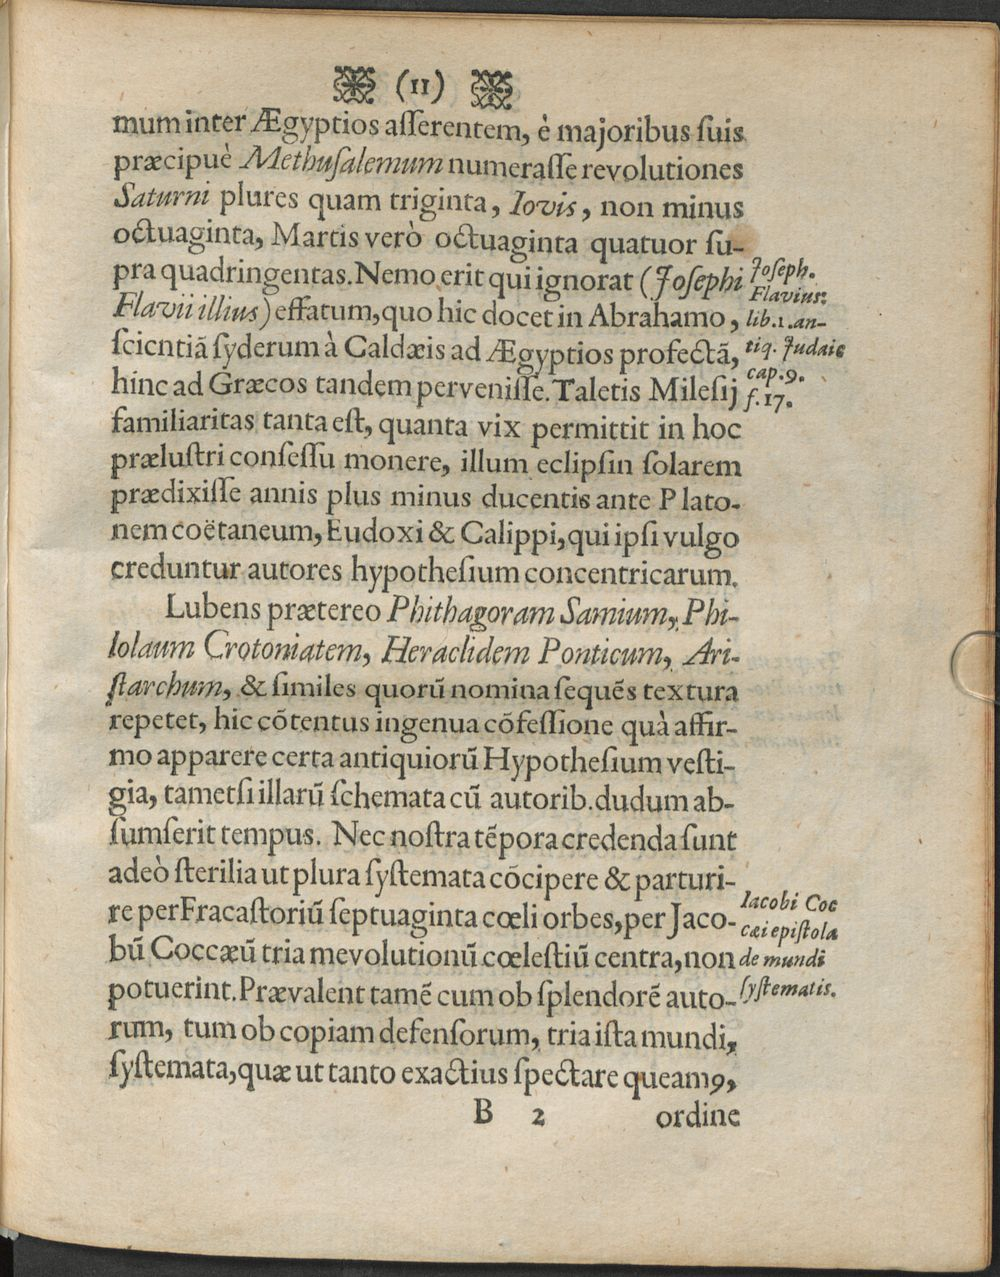 (11)
mum inter Ægyptios aſſerentem, è majoribus ſuis
præcipuè Methuſalemum numeraſſe revolutiones
Saturni plures quam triginta, Iovis, non minus
octuaginta, Martis verò octuaginta quatuor ſu-
pra quadringentas. Nemo erit qui ignorat (Joſephi
Flavii illius) effatum, quo hic docet in Abrahamo,
ſcientiã ſyderum à Caldæis ad Ægyptios profectã,
hinc ad Græcos tandem perveniſſe. Taletis Mileſij
familiaritas tanta eſt, quanta vix permittit in hoc
præluſtri conſeſſu monere, illum eclipſin ſolarem
prædixiſſe annis plus minus ducentis ante Plato-
nem coëtaneum, Eudoxi & Calippi, qui ipſi vulgo
creduntur autores hypotheſium concentricarum.
Lubens prætereo Phithagoram Samium, Phi-
lolaum Crotoniatem, Heraclidem Ponticum, Ari-
ſtarchum, & ſimiles quorũ nomina ſequẽs textura
repetet, hic cõtentus ingenua cõfeſſione quà affir-
mo apparere certa antiquiorũ Hypotheſium veſti-
gia, tametſi illarũ ſchemata cũ autorib. dudum ab-
ſumſerit tempus. Nec noſtra tẽpora credenda ſunt
adeò ſterilia ut plura ſyſtemata cõcipere & parturi-
re per Fracaſtoriũ ſeptuaginta cœli orbes, per Jaco-
bũ Coccæũ tria mevolutionũ cœleſtiũ centra, non
potuerint. Prævalent tamẽ cum ob ſplendorẽ auto-
rum, tum ob copiam defenſorum, tria iſta mundi,
ſyſtemata, quæ ut tanto exactius ſpectare queamꝰ,
B 2 ordine
Joſeph.
Flavius:
lib. 1. an-
tiq. Judaic
cap. 9.
f. 17.
Iacobi Coc
cæi epiſtola
de mundi
ſyſtematis.